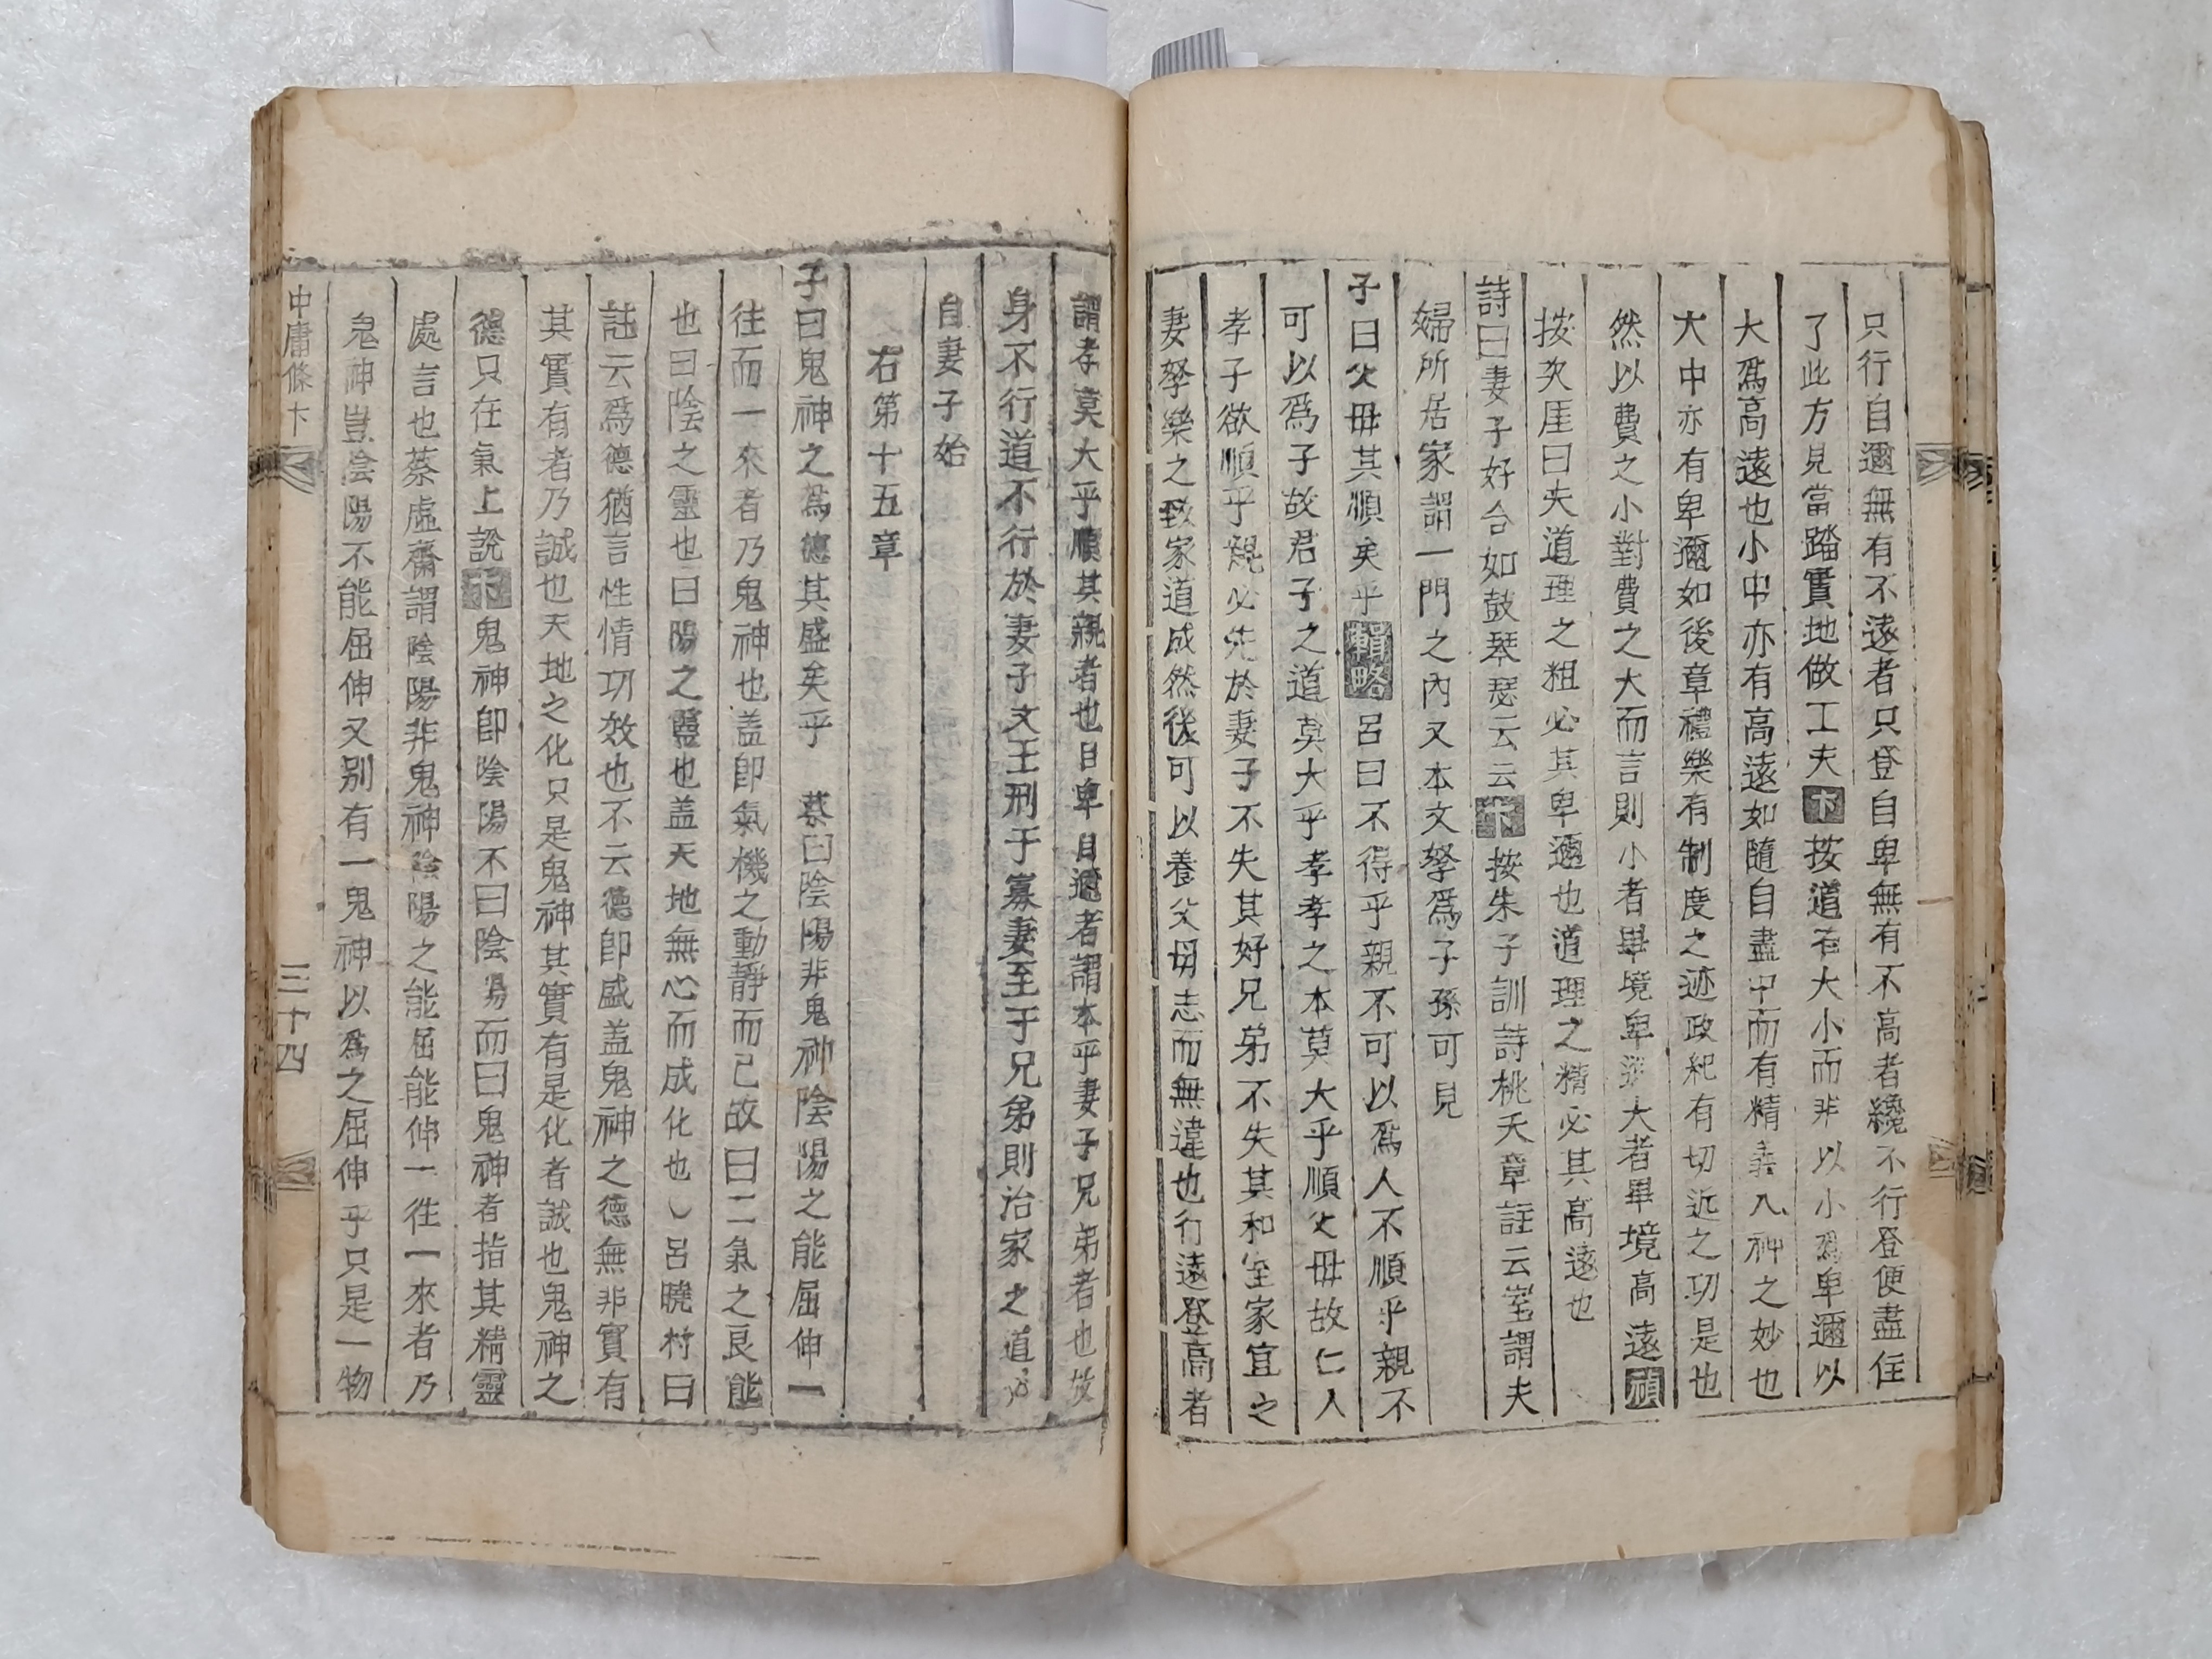 只行自邇無有不遠者只登自卑無有不高者纔不行登便盡住
了此方見當踏實地做工夫卞按道有大小而非以小爲卑邇以
大爲高遠也小中亦有高遠如隨自盡中而有精義入神之妙也
大中亦有卑邇如後章禮樂有制度之迹政紀有切近之功是也
然以費之小對費之大而言則小者畢境卑邇大者畢境高遠頑
按次厓曰夫道理之粗必其卑邇也道理之精必其高遠也
詩曰妻子好合如鼓琴瑟云云卞按朱子訓詩桃夭章註云室謂夫
婦所居家謂一門之內又本文孥爲子孫可見
子曰父毋其順矣乎輯略呂曰不得乎親不可以爲人不順乎親不
可以爲子故君子之道莫大乎孝孝之本莫大乎順父毋故仁人
孝子欲順乎親必先於妻子不失其好兄弟不失其和室家宜之
妻孥樂之致家道成然後可以養父毋志而無違也行遠登高者
謂孝莫大乎順其親者也自卑自邇者謂本乎妻子兄弟者也故
身不行道不行於妻子文王刑于寡妻至于兄弟則治家之道必
自妻子始
右第十五章
子曰鬼神之爲德其盛矣乎 蔡曰陰陽非鬼神陰陽之能屈伸一
往而一來者乃鬼神也盖卽氣機之動靜而已故曰二氣之良能
也曰陰之靈也曰陽之靈也盖天地無心而成化也 呂曉村曰
註云爲德猶言性情功效也不云德卽盛盖鬼神之德無非實有
其實有者乃誠也天地之化只是鬼神其實有是化者誠也鬼神之
德只在氣上說卞鬼神卽陰陽不曰陰陽而曰鬼神者指其精靈
處言也蔡虛齋謂陰陽非鬼神陰陽之能屈能伸一往一來者乃
鬼神豈陰陽不能屈伸又別有一鬼神以爲之屈伸乎只是一物
中庸條卞
三十四